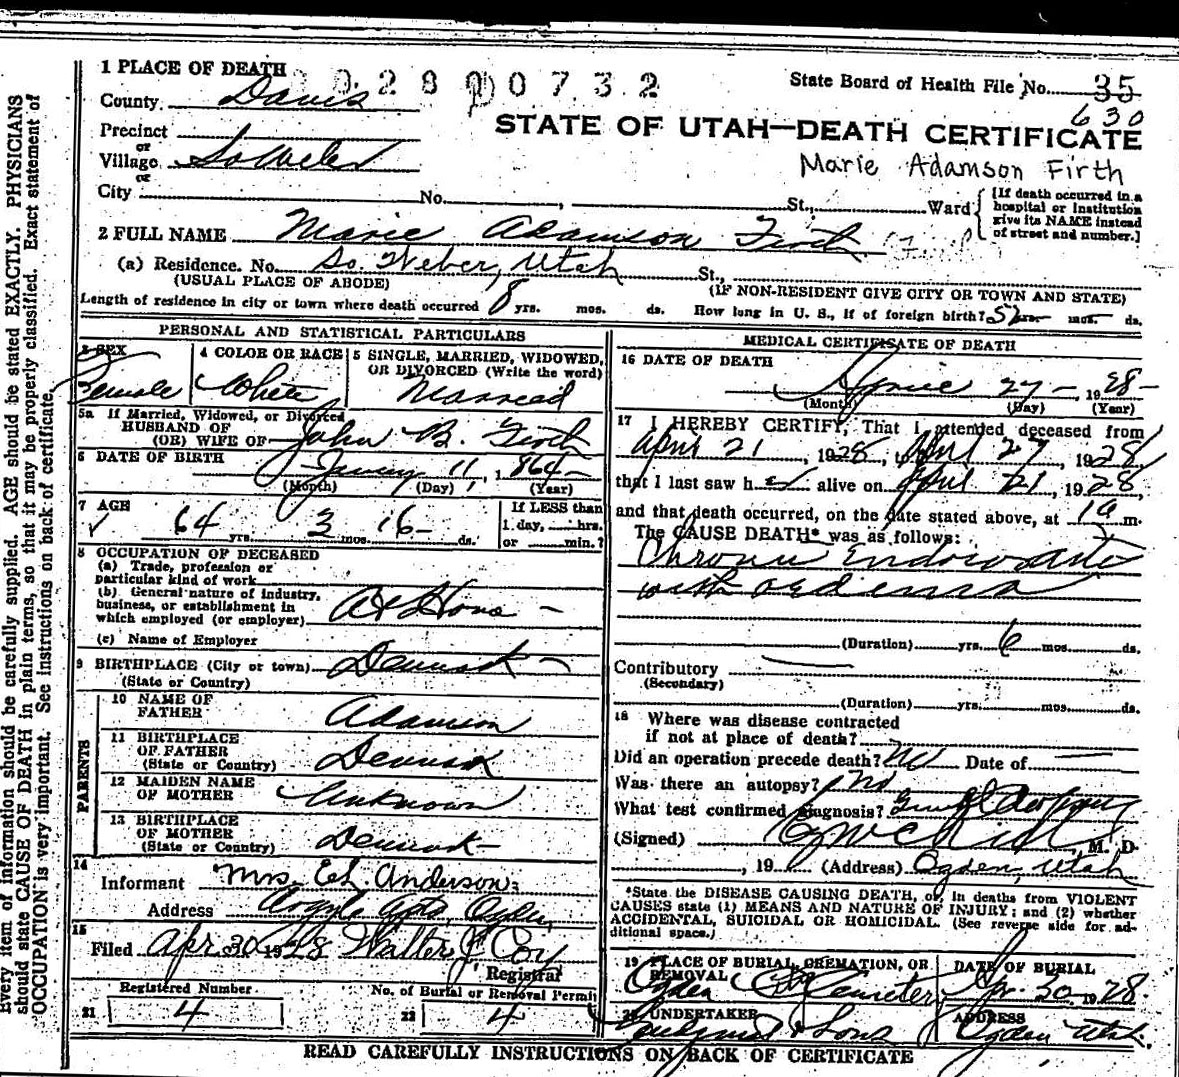 1 PLACE OF DEATH
2 8 0 0 7 3 2
State Board of Health File No. 35
630
County Davis
STATE OF UTAH—DEATH CERTIFICATE
Precinct
or
Village So Weber
Marie Adamson Firth
or
City No. , St., Ward
[If death occurred in a hospital or institution give its NAME instead of street and number.]
2 FULL NAME Marie Adamson Firth
(a) Residence. No. So. Weber, Utah St.,
(USUAL PLACE OF ABODE) (IF NON-RESIDENT GIVE CITY OR TOWN AND STATE)
Length of residence in city or town where death occurred 8 yrs. mos. ds. How long in U. S., if of foreign birth? 52 yrs. mos. ds.
PERSONAL AND STATISTICAL PARTICULARS
3 SEX
Female
4 COLOR OR RACE
White
5 SINGLE, MARRIED, WIDOWED,
OR DIVORCED (Write the word)
Married
5a If Married, Widowed, or Divorced
HUSBAND OF
(OR) WIFE OF John B. Firth
6 DATE OF BIRTH 11, 1864
(Month) (Day) (Year)
7 AGE
64 yrs. 3 mos. 16 ds.
If LESS than
1 day, hrs.
or min.?
8 OCCUPATION OF DECEASED
(a) Trade, profession or
particular kind of work
(b) General nature of industry,
business, or establishment in
which employed (or employer) At Home
(c) Name of Employer
9 BIRTHPLACE (City or town) Denmark
(State or Country)
PARENTS
10 NAME OF
FATHER Adamson
11 BIRTHPLACE
OF FATHER
(State or Country) Denmark
12 MAIDEN NAME
OF MOTHER Unknown
13 BIRTHPLACE
OF MOTHER
(State or Country) Denmark
14
Informant Mrs. Anderson
Address Argyle Apts, Ogden,
15
Filed Apr 30 1928 Walter J Coy
Registrar
Registered Number
21 4
No. of Burial or Removal Permit
22 4
MEDICAL CERTIFICATE OF DEATH
16 DATE OF DEATH
April 27 1928
(Month) (Day) (Year)
17 I HEREBY CERTIFY, That I attended deceased from
April 21, 1928, April 27 1928
that I last saw her alive on April 21, 1928,
and that death occurred, on the date stated above, at 1 a m.
The CAUSE DEATH* was as follows:
Chronic Endocarditis
with oedema
(Duration) yrs. 6 mos. ds.
Contributory
(Secondary)
(Duration) yrs. mos. ds.
18 Where was disease contracted
if not at place of death?
Did an operation precede death? No Date of
Was there an autopsy? No
What test confirmed diagnosis?
(Signed) M. D.
, 19 (Address) Ogden, Utah
*State the DISEASE CAUSING DEATH, or, in deaths from VIOLENT
CAUSES state (1) MEANS AND NATURE OF INJURY; and (2) whether
ACCIDENTAL, SUICIDAL OR HOMICIDAL. (See reverse side for ad-
ditional space.)
19 PLACE OF BURIAL, CREMATION, OR
REMOVAL
Ogden City Cemetery
DATE OF BURIAL
Apr. 30 1928
20 UNDERTAKER
& Sons
ADDRESS
Ogden Utah.
READ CAREFULLY INSTRUCTIONS ON BACK OF CERTIFICATE
Every item of information should be carefully supplied. AGE should be stated EXACTLY. PHYSICIANS
should state CAUSE OF DEATH in plain terms, so that it may be properly classified. Exact statement of
OCCUPATION is very important. See instructions on back of certificate.